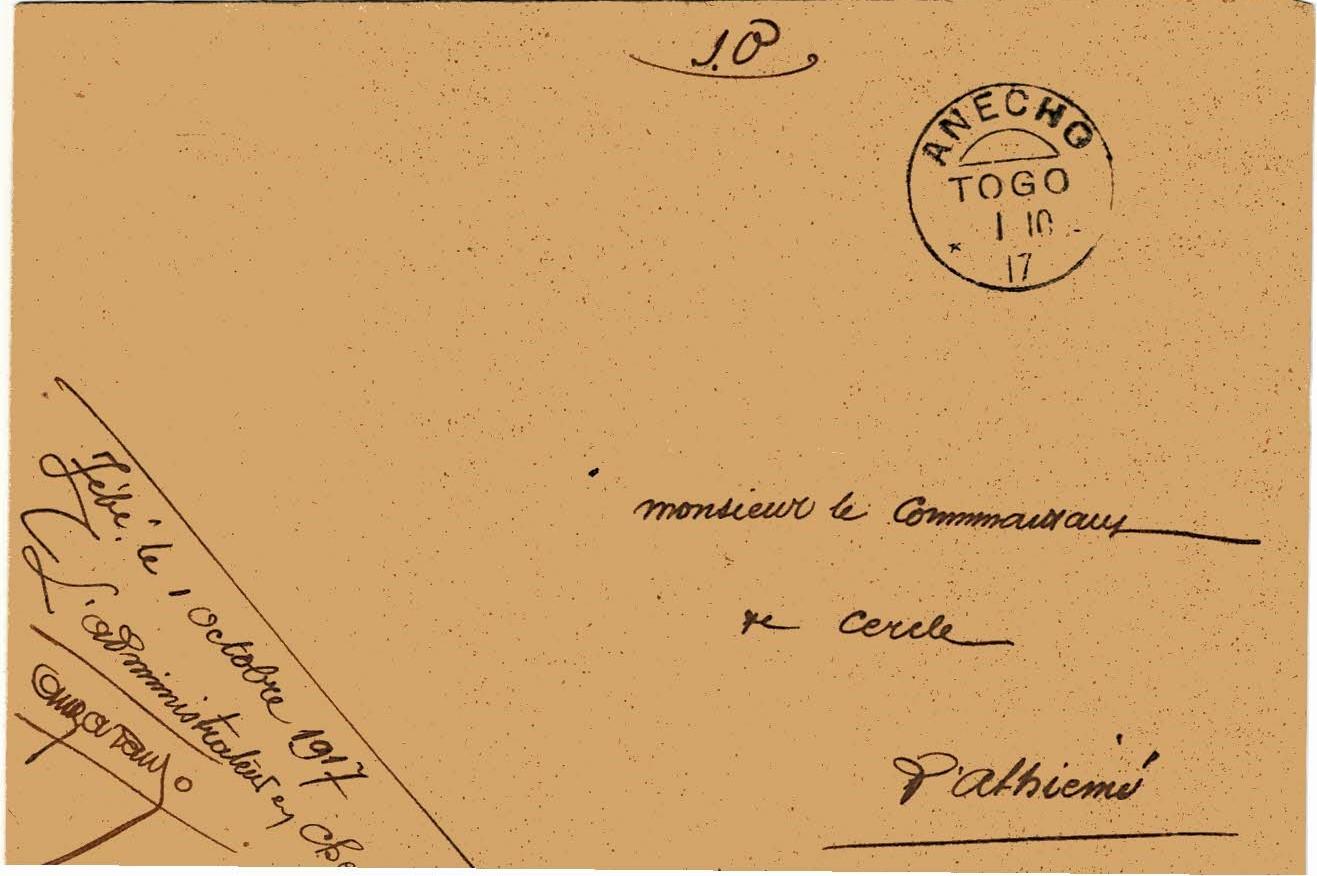 ANECHO
TOGO
1 10
17
monsieur le Commandant
de Cercle
d'Athiémé
Zébé. le 1 Octobre 1917
L'administrateur en Che